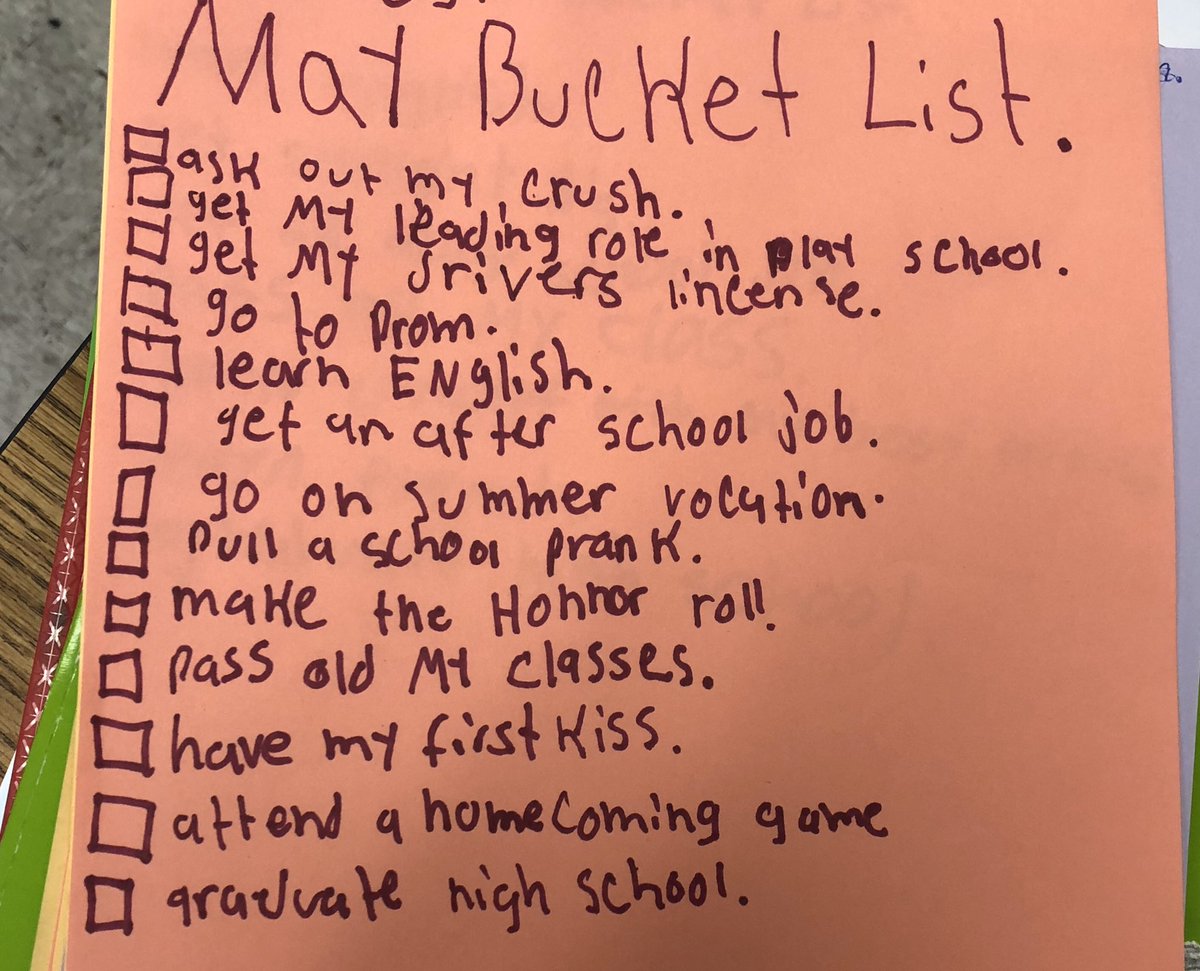 May Bucket List.
ask out my crush.
get My leading role in play school.
get My drivers lincense.
go to prom.
learn English.
get an after school job.
go on summer vocation.
pull a school prank.
make the Honhor roll.
pass old My classes.
have my first kiss.
attend a homecoming game
graduate high school.